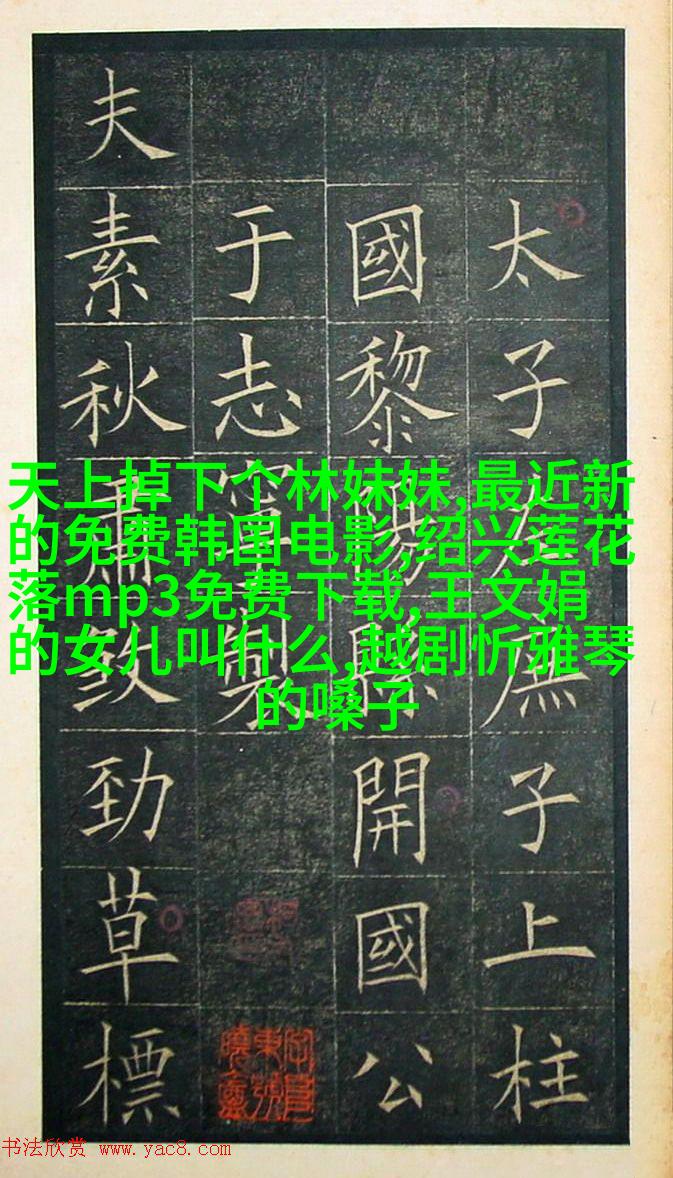 太子左庶子上柱
國黎陽縣開國公
于志寧製
夫素秋肅煞勁草標
天上掉下个林妹妹,最近新
的免费韩国电影,绍兴莲花
落mp3免费下载,王文娟
的女儿叫什么,越剧忻雅琴
的嗓子
书法欣赏 www.yac8.com